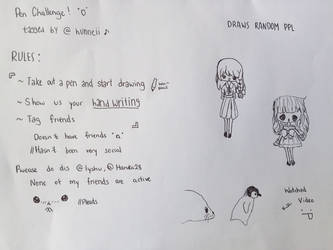 Pen Challenge! "O"
tagged by @ hunneii ♪
DRAWS RANDOM PPL
RULES:
~ Take out a pen and start drawing
~ Show us your handwriting
~ Tag friends
Doesn't have friends
//Hasn't been very social
Pwease do dis @ lyshu, @ Haruki28
None of my friends are active
//Pleads
Watched
Video